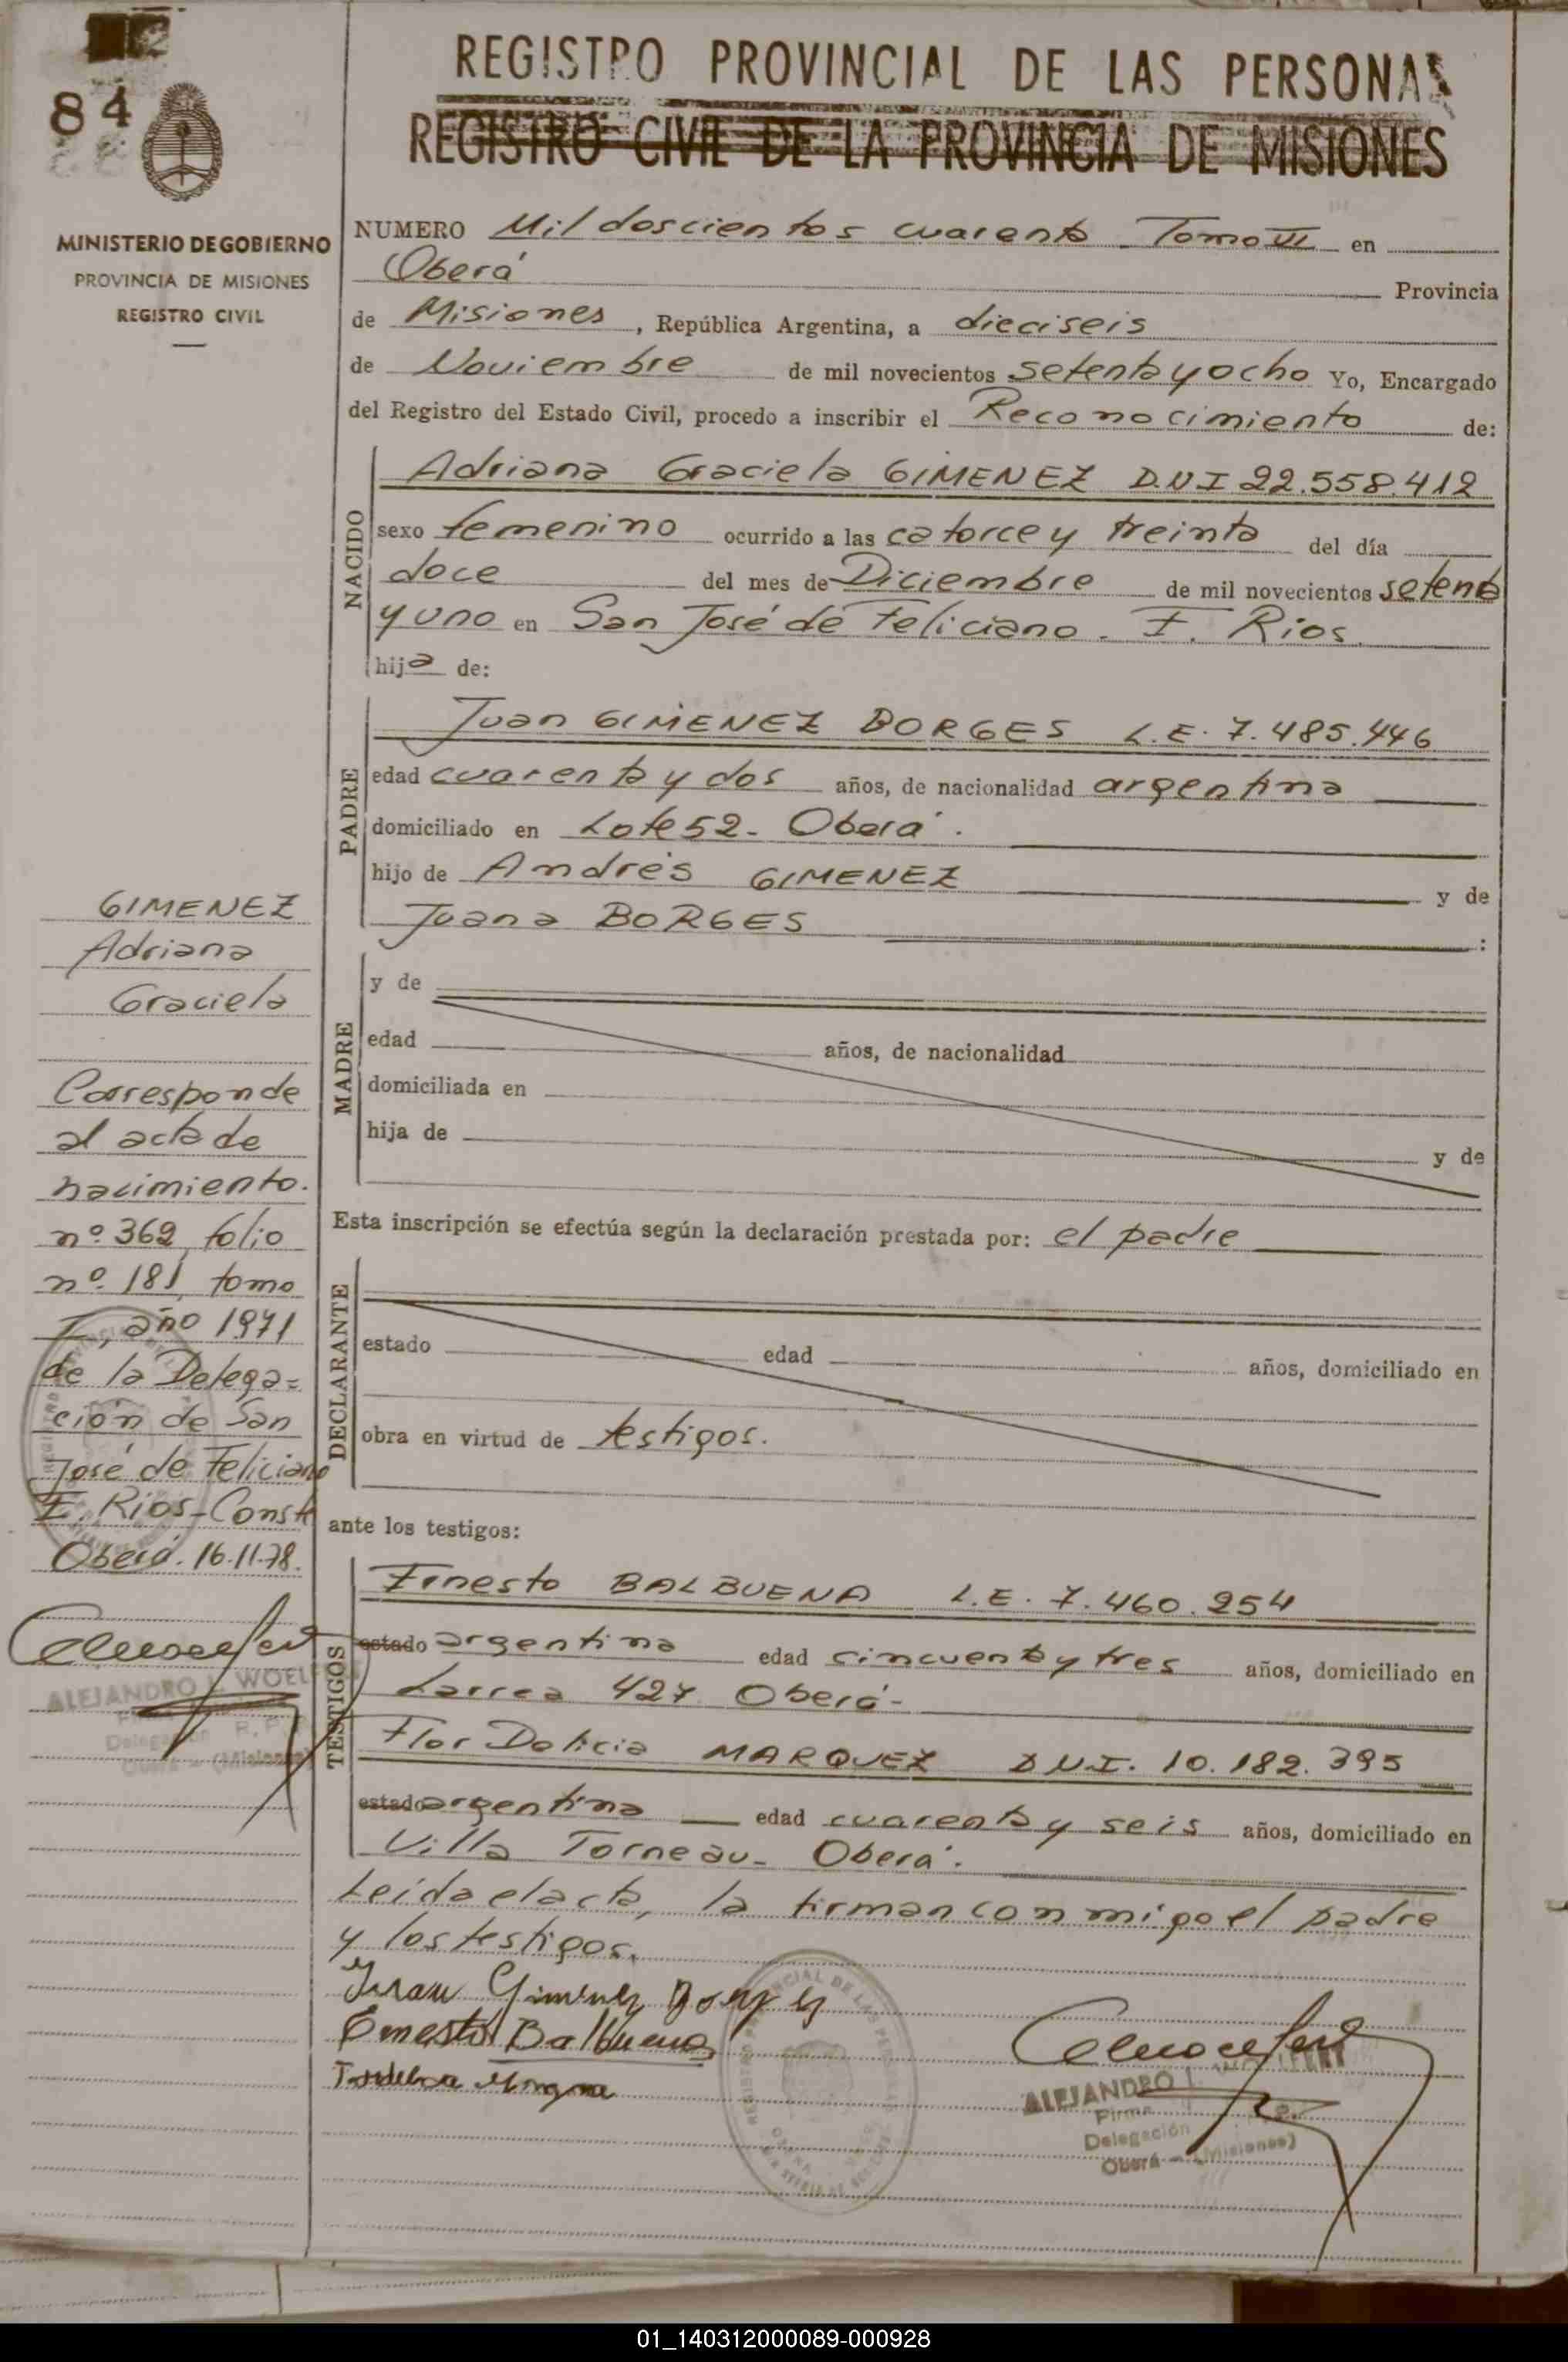 84
REGISTRO PROVINCIAL DE LAS PERSONAS
REGISTRO CIVIL DE LA PROVINCIA DE MISIONES
MINISTERIO DE GOBIERNO
PROVINCIA DE MISIONES
REGISTRO CIVIL
NUMERO Mil doscientos cuarenta Tomo VI en
Oberá Provincia
de Misiones, República Argentina, a dieciseis
de Noviembre de mil novecientos setenta y ocho Yo, Encargado
del Registro del Estado Civil, procedo a inscribir el Reconocimiento de:
NACIDO
Adriana Graciela GIMENEZ D.N.I 22.558.412
sexo femenino ocurrido a las catorce y treinta del día
doce del mes de Diciembre de mil novecientos setenta
y uno en San José de Feliciano. E. Rios
hija de:
PADRE
Juan GIMENEZ BORGES L.E. 7.485.446
edad cuarenta y dos años, de nacionalidad argentina
domiciliado en Lote 52- Oberá.
hijo de Andrés GIMENEZ y de
Juana BORGES :
MADRE
y de
edad años, de nacionalidad
domiciliada en
hija de y de
Esta inscripción se efectúa según la declaración prestada por: el padre
DECLARANTE
estado edad años, domiciliado en
obra en virtud de testigos.
ante los testigos:
TESTIGOS
Ernesto BALBUENA L.E. 7.460.254
estado argentina edad cincuenta y tres años, domiciliado en
Larrea 427 Oberá-
Flor Delicia MARQUEZ D.N.I. 10.182.395
estado argentina edad cuarenta y seis años, domiciliado en
Villa Torneau- Oberá.
Leida el acta, la firman conmigo el padre
y los testigos.
Juan Gimenez Borges
Ernesto Balbuena
GIMENEZ
Adriana
Graciela
Corresponde
al acta de
nacimiento.
nº 362, folio
nº 181, tomo
I, año 1971
de la Delega=
ción de San
José de Feliciano
E. Rios-Conste
Oberá. 16-11-78.
ALEJANDRO
Delegación R. P.
Oberá - (Misiones)
ALEJANDRO
Firma
Delegación
Oberá - (Misiones)
01_140312000089-000928